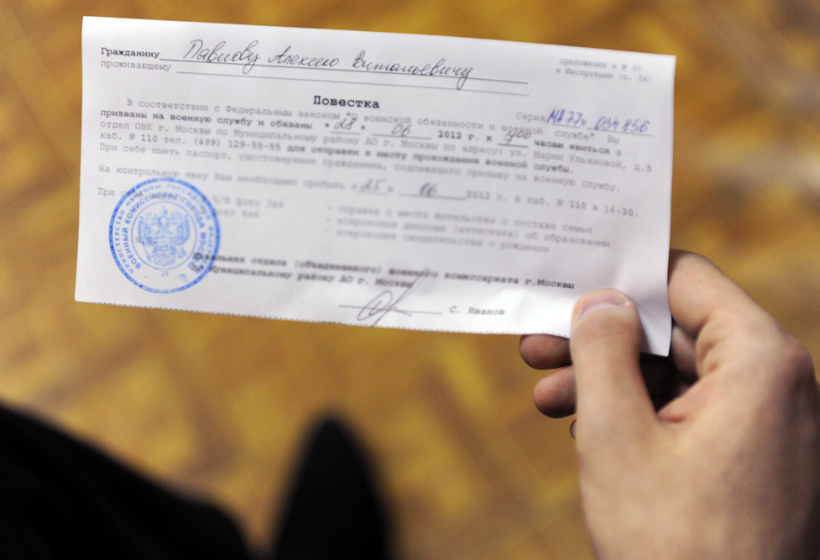 Гражданину Павлову Алексею Витальевичу
проживающему
Приложение к № 30
к Инструкции (п. 34)
Повестка
Серия МД 77 034856
В соответствии с Федеральным законом "О воинской обязанности и военной службе" Вы
призваны на военную службу и обязаны "28" 06 2012 г. к часам явиться в
отдел ОВК г. Москвы по Муниципальному району АО г. Москвы по адресу: ул. Марии Ульяновой, д.5
каб. № 110 тел. (499) 129-55-55 для отправки к месту прохождения военной службы.
При себе иметь паспорт, удостоверение гражданина, подлежащего призыву на военную службу.
На контрольную явку Вам необходимо прибыть "25" 06 2012 г. в каб. № 110 в 14:30.
При
фото 3х4 - справка с места жительства о составе семьи
фото - ксерокопия диплома (аттестата) об образовании
- ксерокопия свидетельства о рождении
Начальник отдела (объединенного) военного комиссариата г.Москвы
по Муниципальному району АО г. Москвы
С. Иванов
МИНИСТЕРСТВО ОБОРОНЫ РОССИЙСКОЙ
ВОЕННЫЙ КОМИССАРИАТ